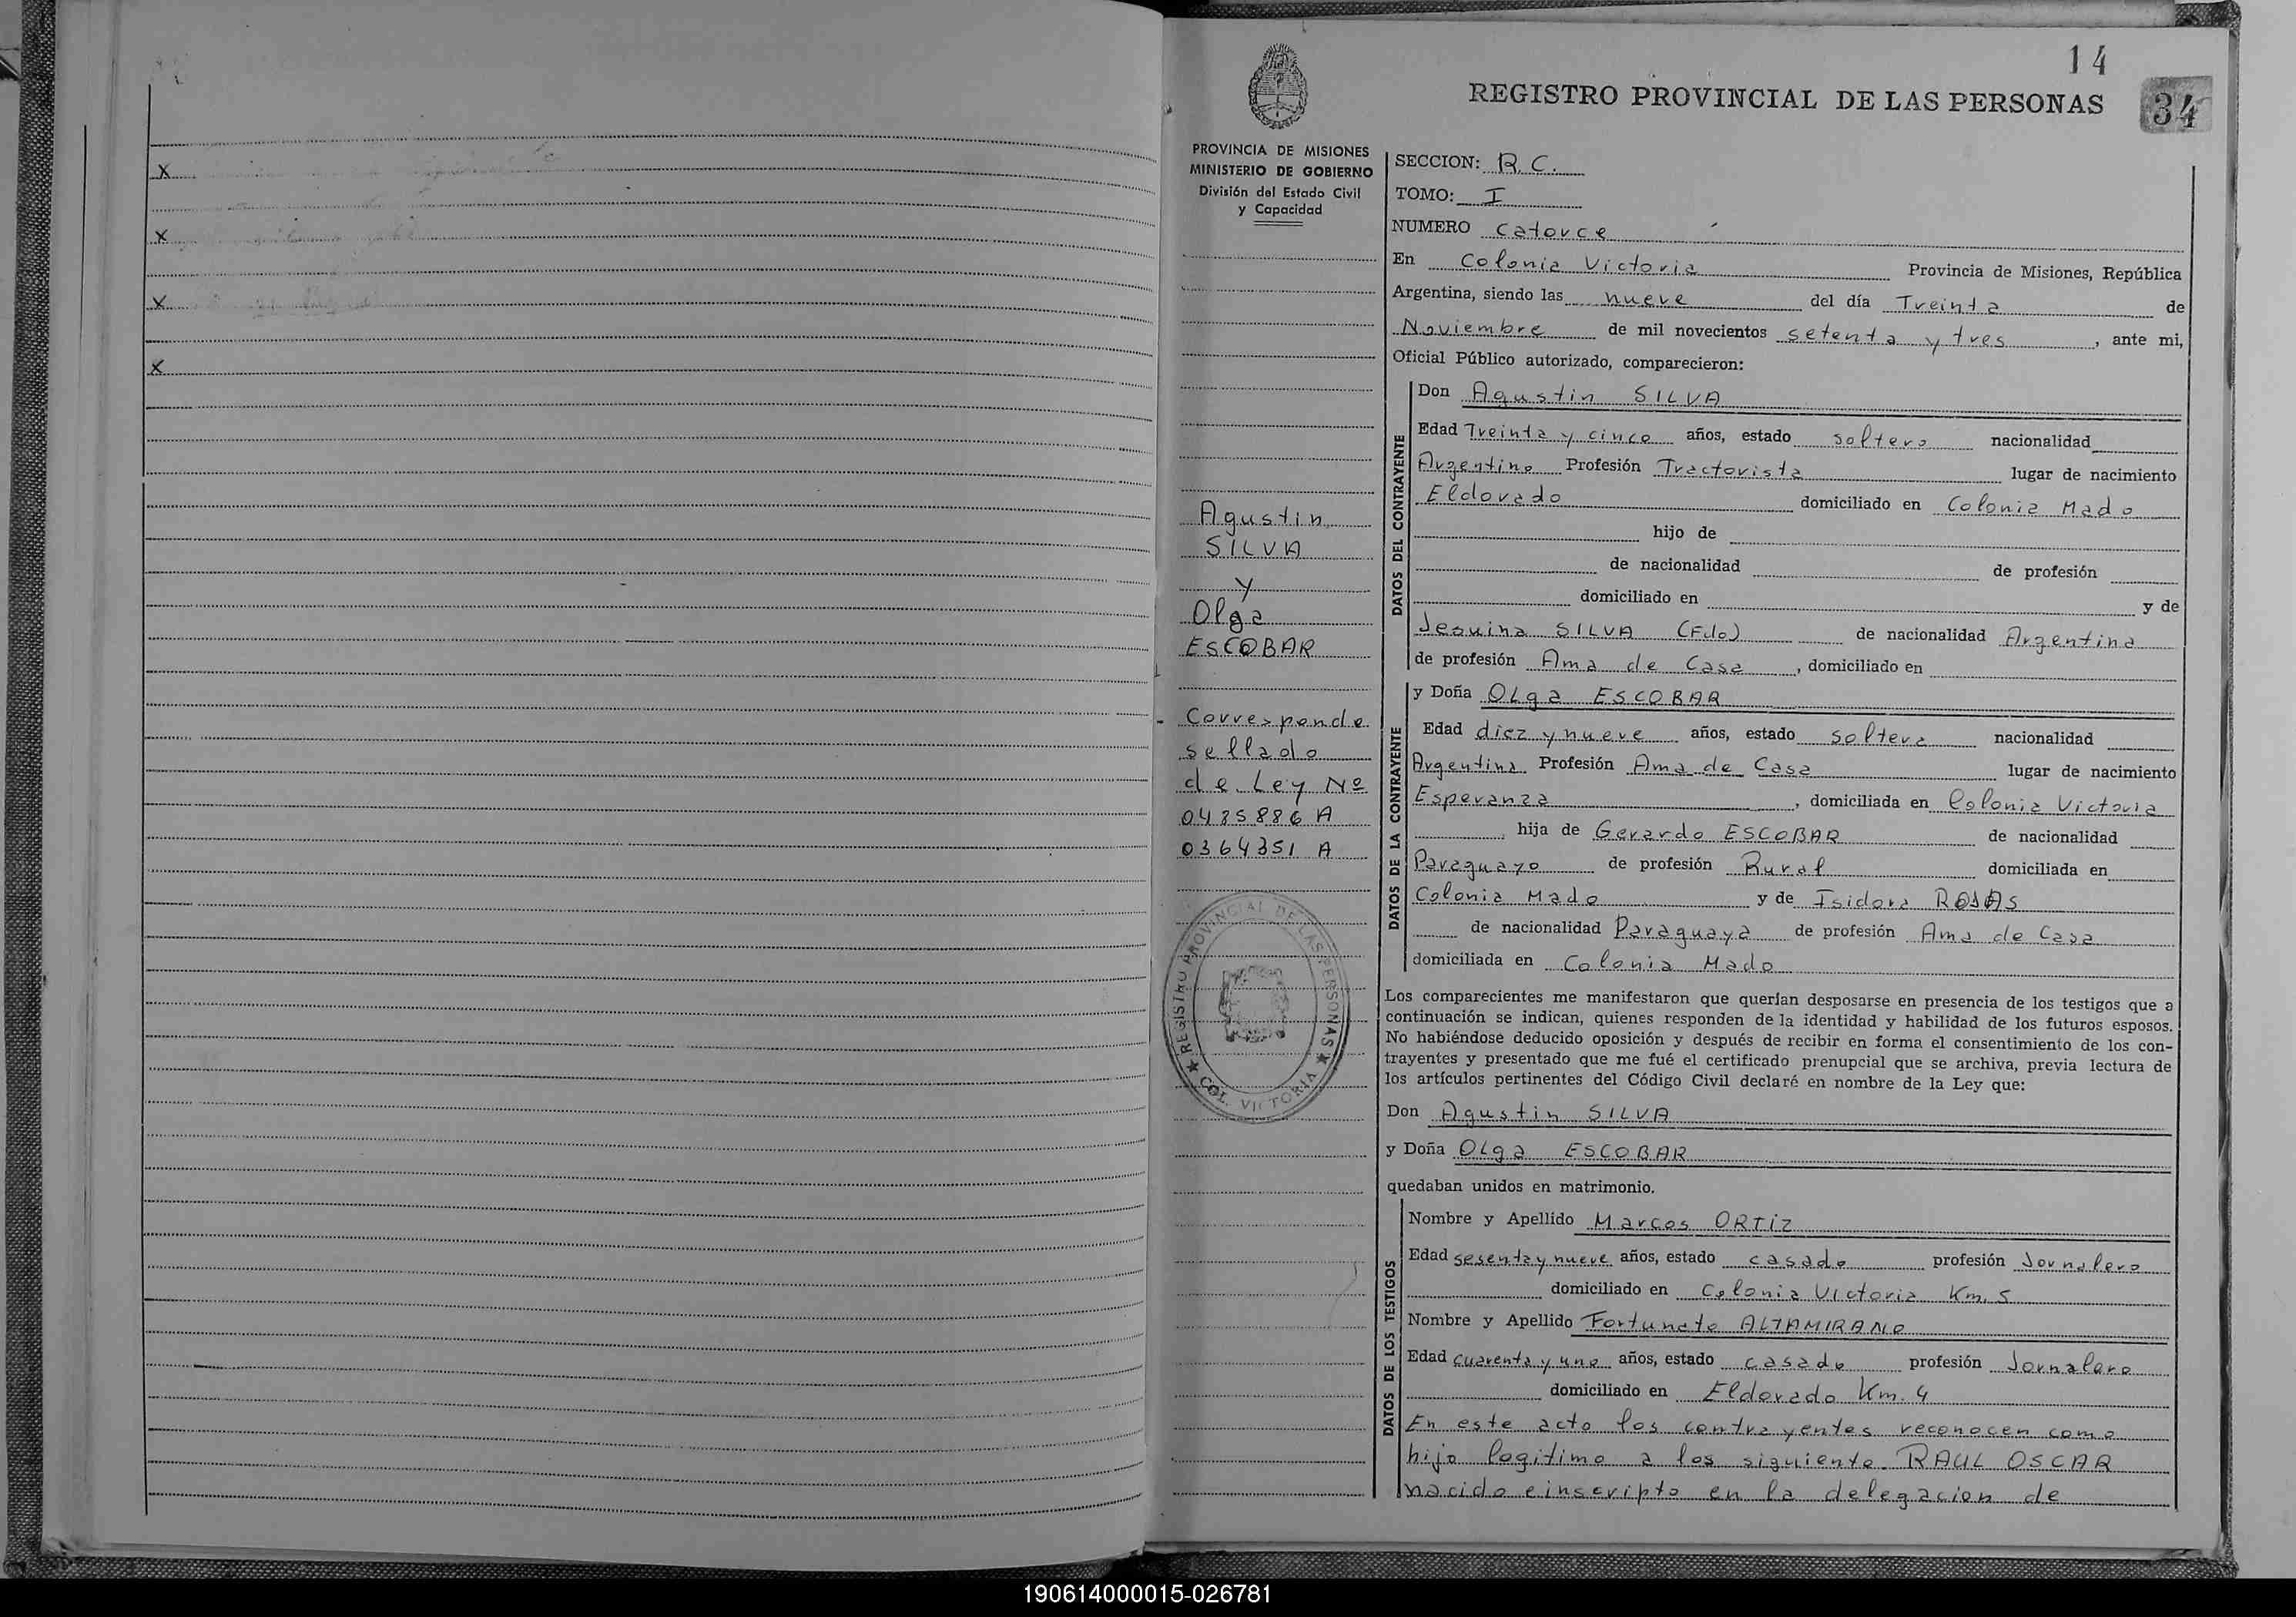 14
REGISTRO PROVINCIAL DE LAS PERSONAS
34
PROVINCIA DE MISIONES
MINISTERIO DE GOBIERNO
División del Estado Civil
y Capacidad
Agustin
SILVA
y
Olga
ESCOBAR
Corresponde
sellado
de Ley Nº
0485886 A
0364351 A
REGISTRO PROVINCIAL DE LAS PERSONAS
COL. VICTORIA
SECCION: R.C.
TOMO: I
NUMERO catorce
En Colonia Victoria Provincia de Misiones, República
Argentina, siendo las nueve del día Treinta de
Noviembre de mil novecientos setenta y tres, ante mi,
Oficial Público autorizado, comparecieron:
DATOS DEL CONTRAYENTE
Don Agustin SILVA
Edad Treinta y cinco años, estado soltero nacionalidad
Argentino Profesión Tractorista lugar de nacimiento
Eldorado domiciliado en Colonia Mado
hijo de
de nacionalidad de profesión
domiciliado en y de
Jesuina SILVA (Fdo) de nacionalidad Argentina
de profesión Ama de Casa, domiciliado en
DATOS DE LA CONTRAYENTE
y Doña OLga ESCOBAR
Edad diez y nueve años, estado soltera nacionalidad
Argentina Profesión Ama de Casa lugar de nacimiento
Esperanza, domiciliada en Colonia Victoria
hija de Gerardo ESCOBAR de nacionalidad
Paraguayo de profesión Rural domiciliada en
Colonia Mado y de Isidora ROJAS
de nacionalidad Paraguaya de profesión Ama de Casa
domiciliada en Colonia Mado
Los comparecientes me manifestaron que querían desposarse en presencia de los testigos que a
continuación se indican, quienes responden de la identidad y habilidad de los futuros esposos.
No habiéndose deducido oposición y después de recibir en forma el consentimiento de los con-
trayentes y presentado que me fué el certificado prenupcial que se archiva, previa lectura de
los artículos pertinentes del Código Civil declaré en nombre de la Ley que:
Don Agustin SILVA
y Doña OLga ESCOBAR
quedaban unidos en matrimonio.
DATOS DE LOS TESTIGOS
Nombre y Apellido Marcos ORTIZ
Edad sesenta y nueve años, estado casado profesión Jornalero
domiciliado en Colonia Victoria Km. 5
Nombre y Apellido Fortunato ALTAMIRANO
Edad cuarenta y uno años, estado casado profesión Jornalero
domiciliado en Eldorado Km. 4
En este acto los contrayentes reconocen como
hijo legitimo a los siguiente. RAUL OSCAR
nacido e inscripto en la delegacion de
190614000015-026781